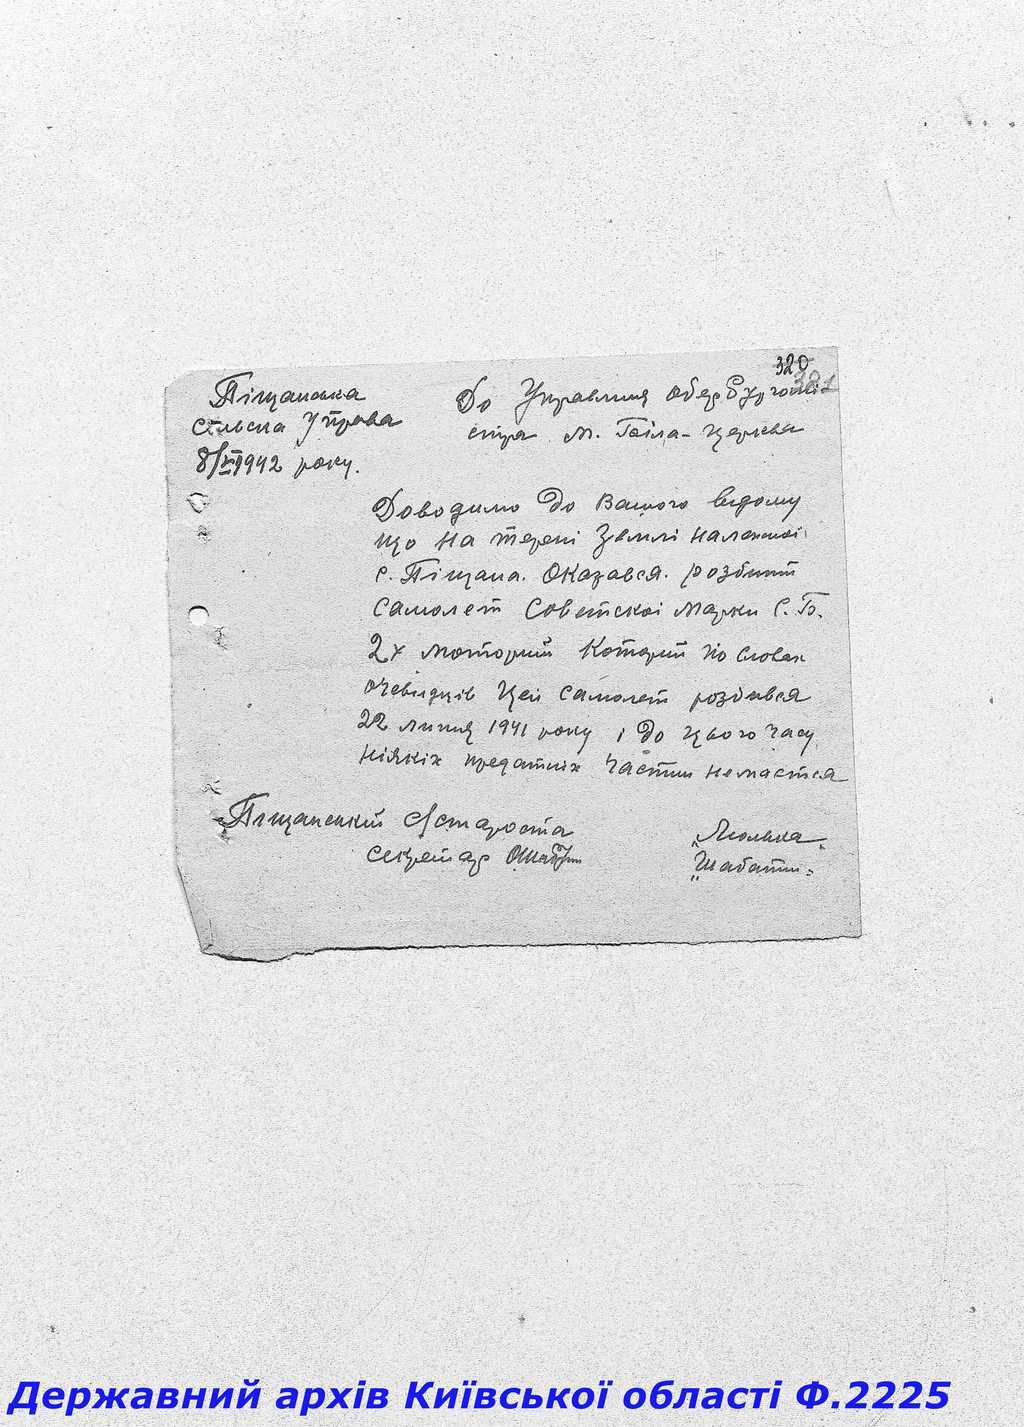 320
321
Піщанська
сільска Управа
8/VI 1942 року.
До Управлиня обер Бургомі
стра м. Біла-Церква
Доводимо до Вашого відому
що на терені Землі належної
с. Піщана. Оказався. розбитий
самолет Советскоі марки С. Б.
2х моторний Которий по словах
очевидців цей самолет розбився
22 липня 1941 року і до цього часу
ніякіх предатніх частин немається
Піщанський С/староста
секретар
„Люлька„
„Шабатин„
Державний архів Київської області Ф.2225